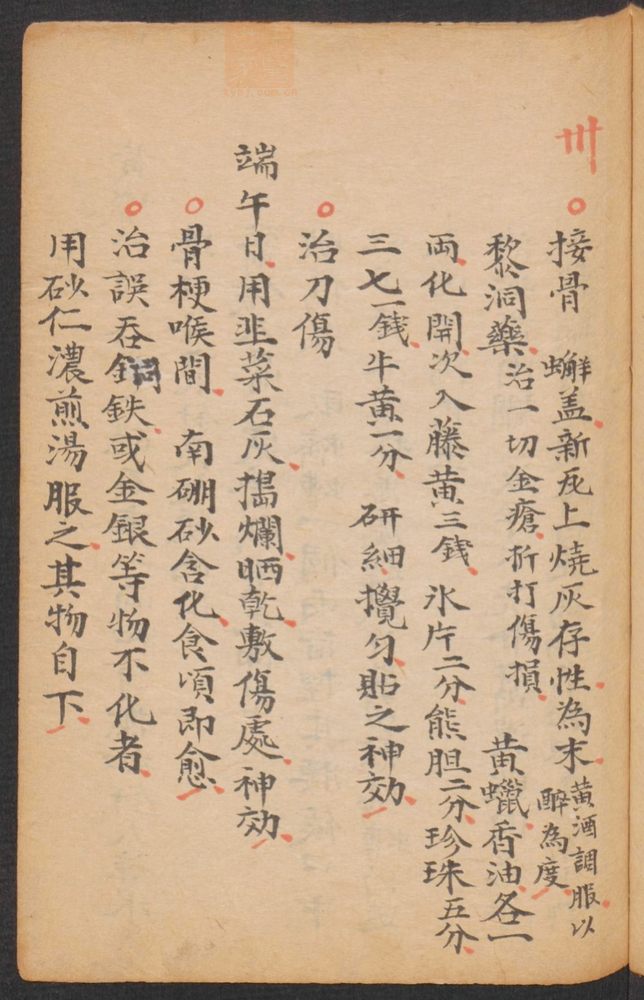 卅
接骨 蠏盖新瓦上燒灰存性為末 黄酒調服以
醉為度
黎洞藥 治一切金瘡折打傷損 黄蠟香油各一
両化開次入藤黄三銭 氷片二分熊胆二分珍珠五分
三七一銭牛黄一分 研細攪匀貼之神効
治刀傷
端午日用韭菜石灰搗爛晒乾敷傷處神効
骨梗喉間 南硼砂含化食頃即愈
治誤吞銅鉄或金銀等物不化者
用砂仁濃煎湯服之其物自下